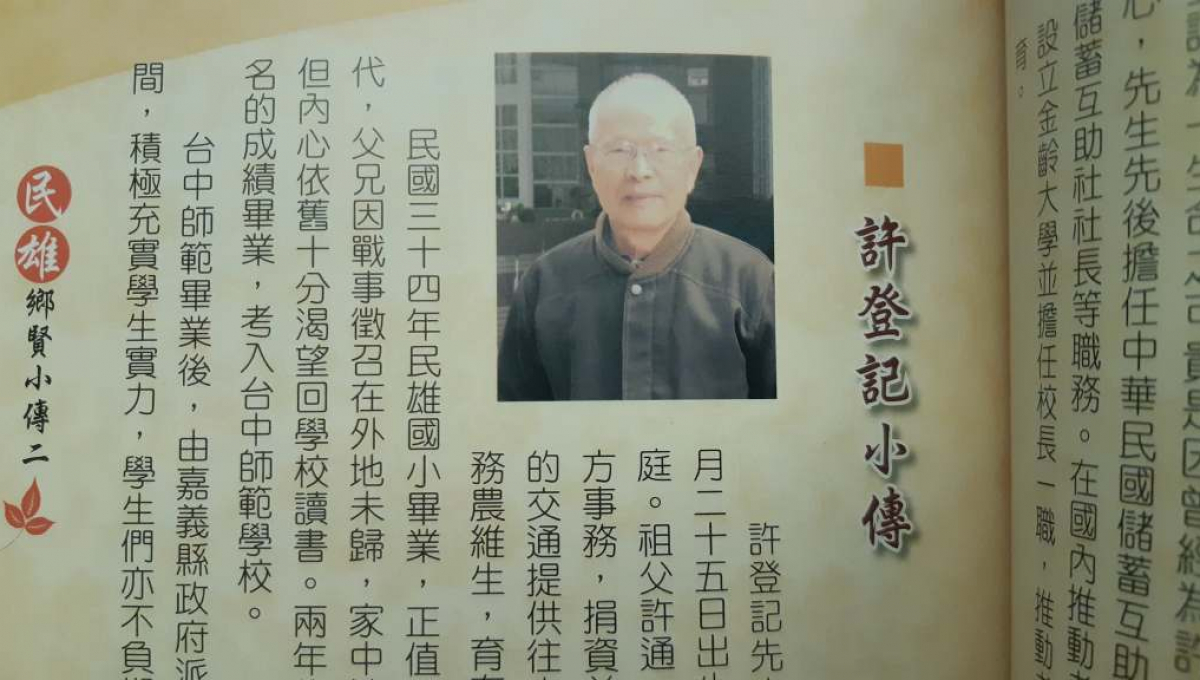 心，先生先後擔任中華民國儲蓄互助
儲蓄互助社社長等職務。在國內推動
設立金齡大學並擔任校長一職，推動
育。
許登記小傳
許登記先
月二十五日出
庭。祖父許通
方事務，捐資
的交通提供往
務農維生，育
民國三十四年民雄國小畢業，正值
代，父兄因戰事徵召在外地未歸，家中
但內心依舊十分渴望回學校讀書。兩年
名的成績畢業，考入台中師範學校。
台中師範畢業後，由嘉義縣政府派
間，積極充實學生實力，學生們亦不負
民雄鄉賢小傳二